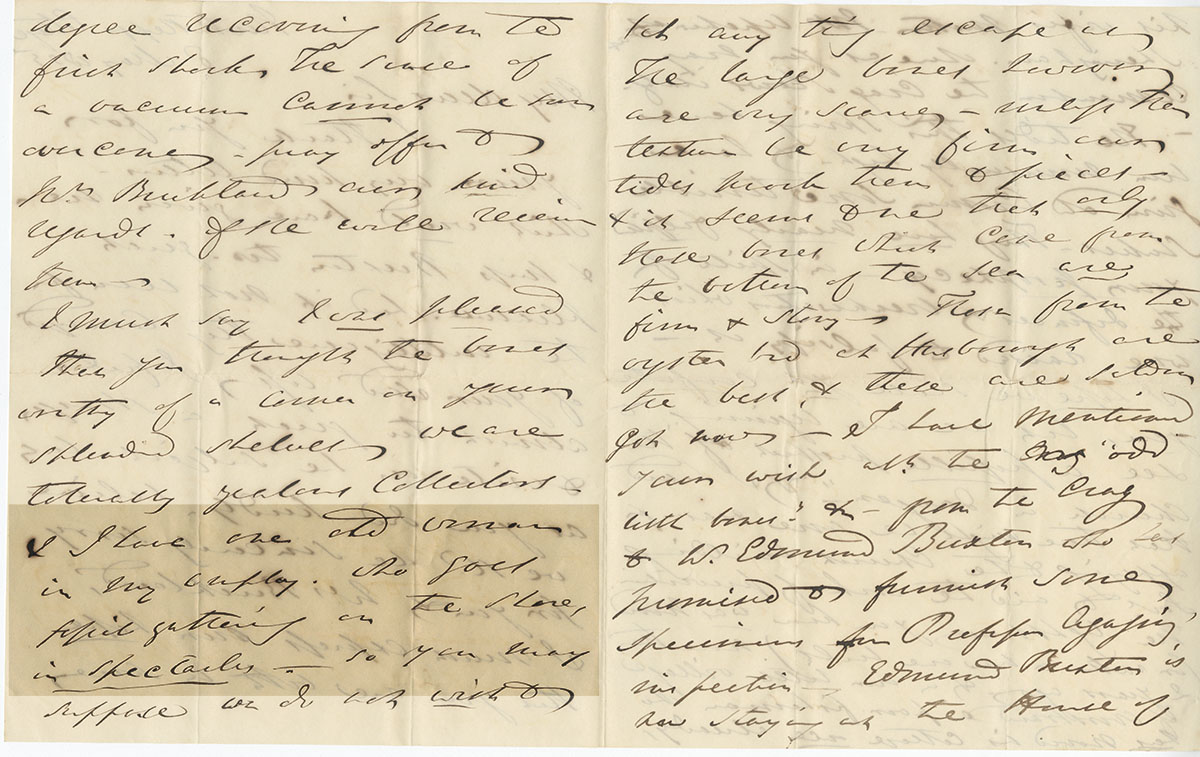 degree recovering from the
first shock, the sense of
a vacuum cannot be soon
overcome - pray offer to
Mrs Buckland our kind
regards - if she will receive
them -
I must say I was pleased
that you thought the bones
worthy of a corner on your
splendid shelves we are
tolerably zealous Collectors -
& I have one old woman
in my employ. who goes
fossil gathering on the shore,
in spectacles - so you may
suppose we do not wish to
let any thing escape us
The large bones however
are very scarce - unless their
texture be very firm our
tides knock them to pieces -
& it seems to me that only
those bones which come from
the bottom of the sea are
firm & strong Those from the
oyster bed at Hasborough are
the best, & these are seldom
got now - I have mentioned
your wish abt. the "odd
little bones" &c - from the Crag
to W. Edmund Buxton who has
promised to furnish some
specimens for Professor Agassiz'
inspection - Edmund Buxton is
now staying at the House of